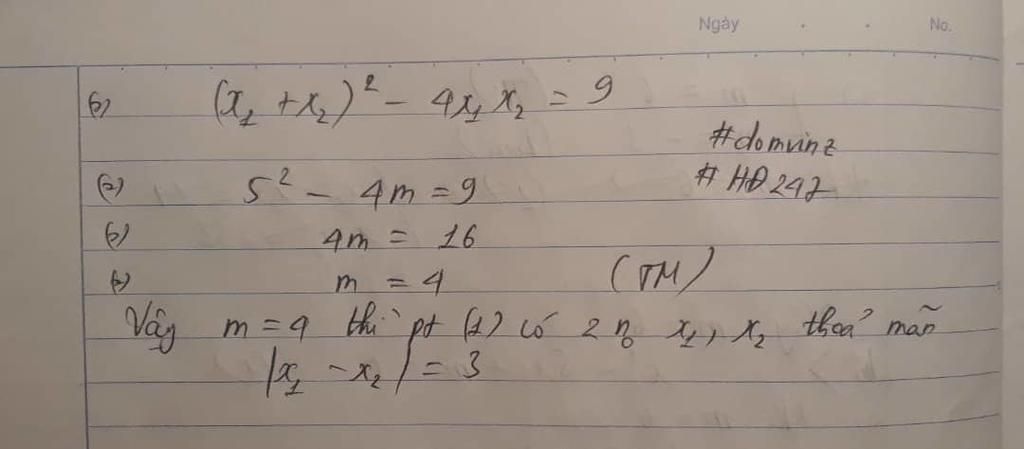 Ngày . . No.
⇔ (x₁ + x₂)² - 4x₁x₂ = 9
#domvinz
⇔ 5² - 4m = 9
# HĐ247
⇔ 4m = 16
⇔ m = 4 (TM)
Vậy m = 4 thì pt (1) có 2 n₀ x₁, x₂ thoả mãn
|x₁ - x₂| = 3